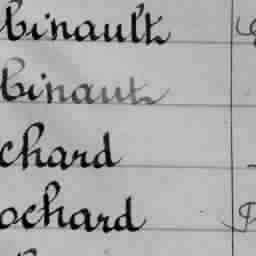 binault
binaut
chard
ochard